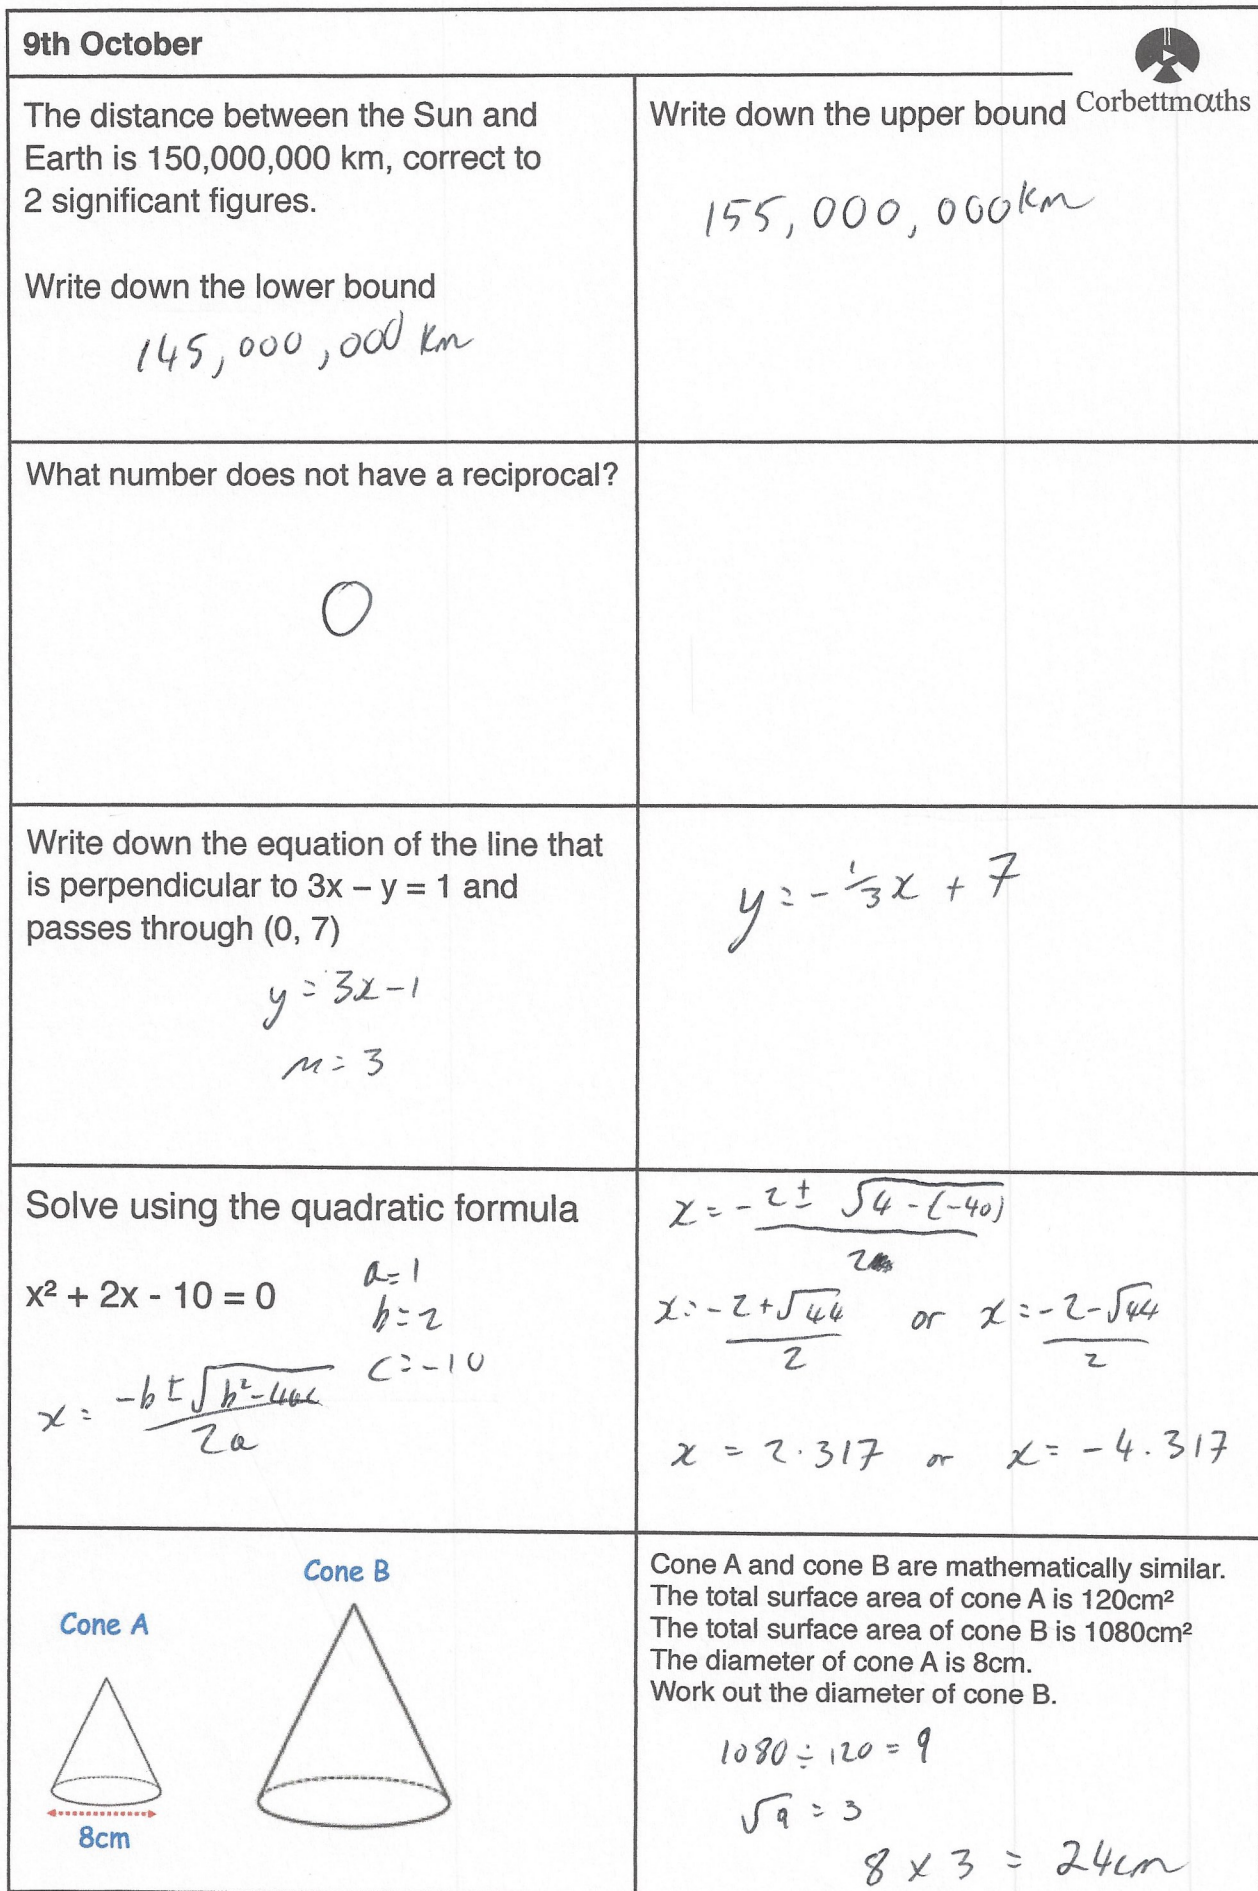 9th October
Corbettmαths
The distance between the Sun and
Earth is 150,000,000 km, correct to
2 significant figures.
Write down the lower bound
145,000,000 km
Write down the upper bound
155,000,000 km
What number does not have a reciprocal?
0
Write down the equation of the line that
is perpendicular to 3x – y = 1 and
passes through (0, 7)
y = 3x - 1
m = 3
y = -1/3x + 7
Solve using the quadratic formula
x² + 2x - 10 = 0
a = 1
b = 2
c = -10
x = -b ± √b²-4ac / 2a
x = -2 ± √4 - (-40) / 2
x = -2 + √44 / 2 or x = -2 - √44 / 2
x = 2.317 or x = -4.317
Cone A
Cone B
8cm
Cone A and cone B are mathematically similar.
The total surface area of cone A is 120cm²
The total surface area of cone B is 1080cm²
The diameter of cone A is 8cm.
Work out the diameter of cone B.
1080 ÷ 120 = 9
√9 = 3
8 x 3 = 24cm